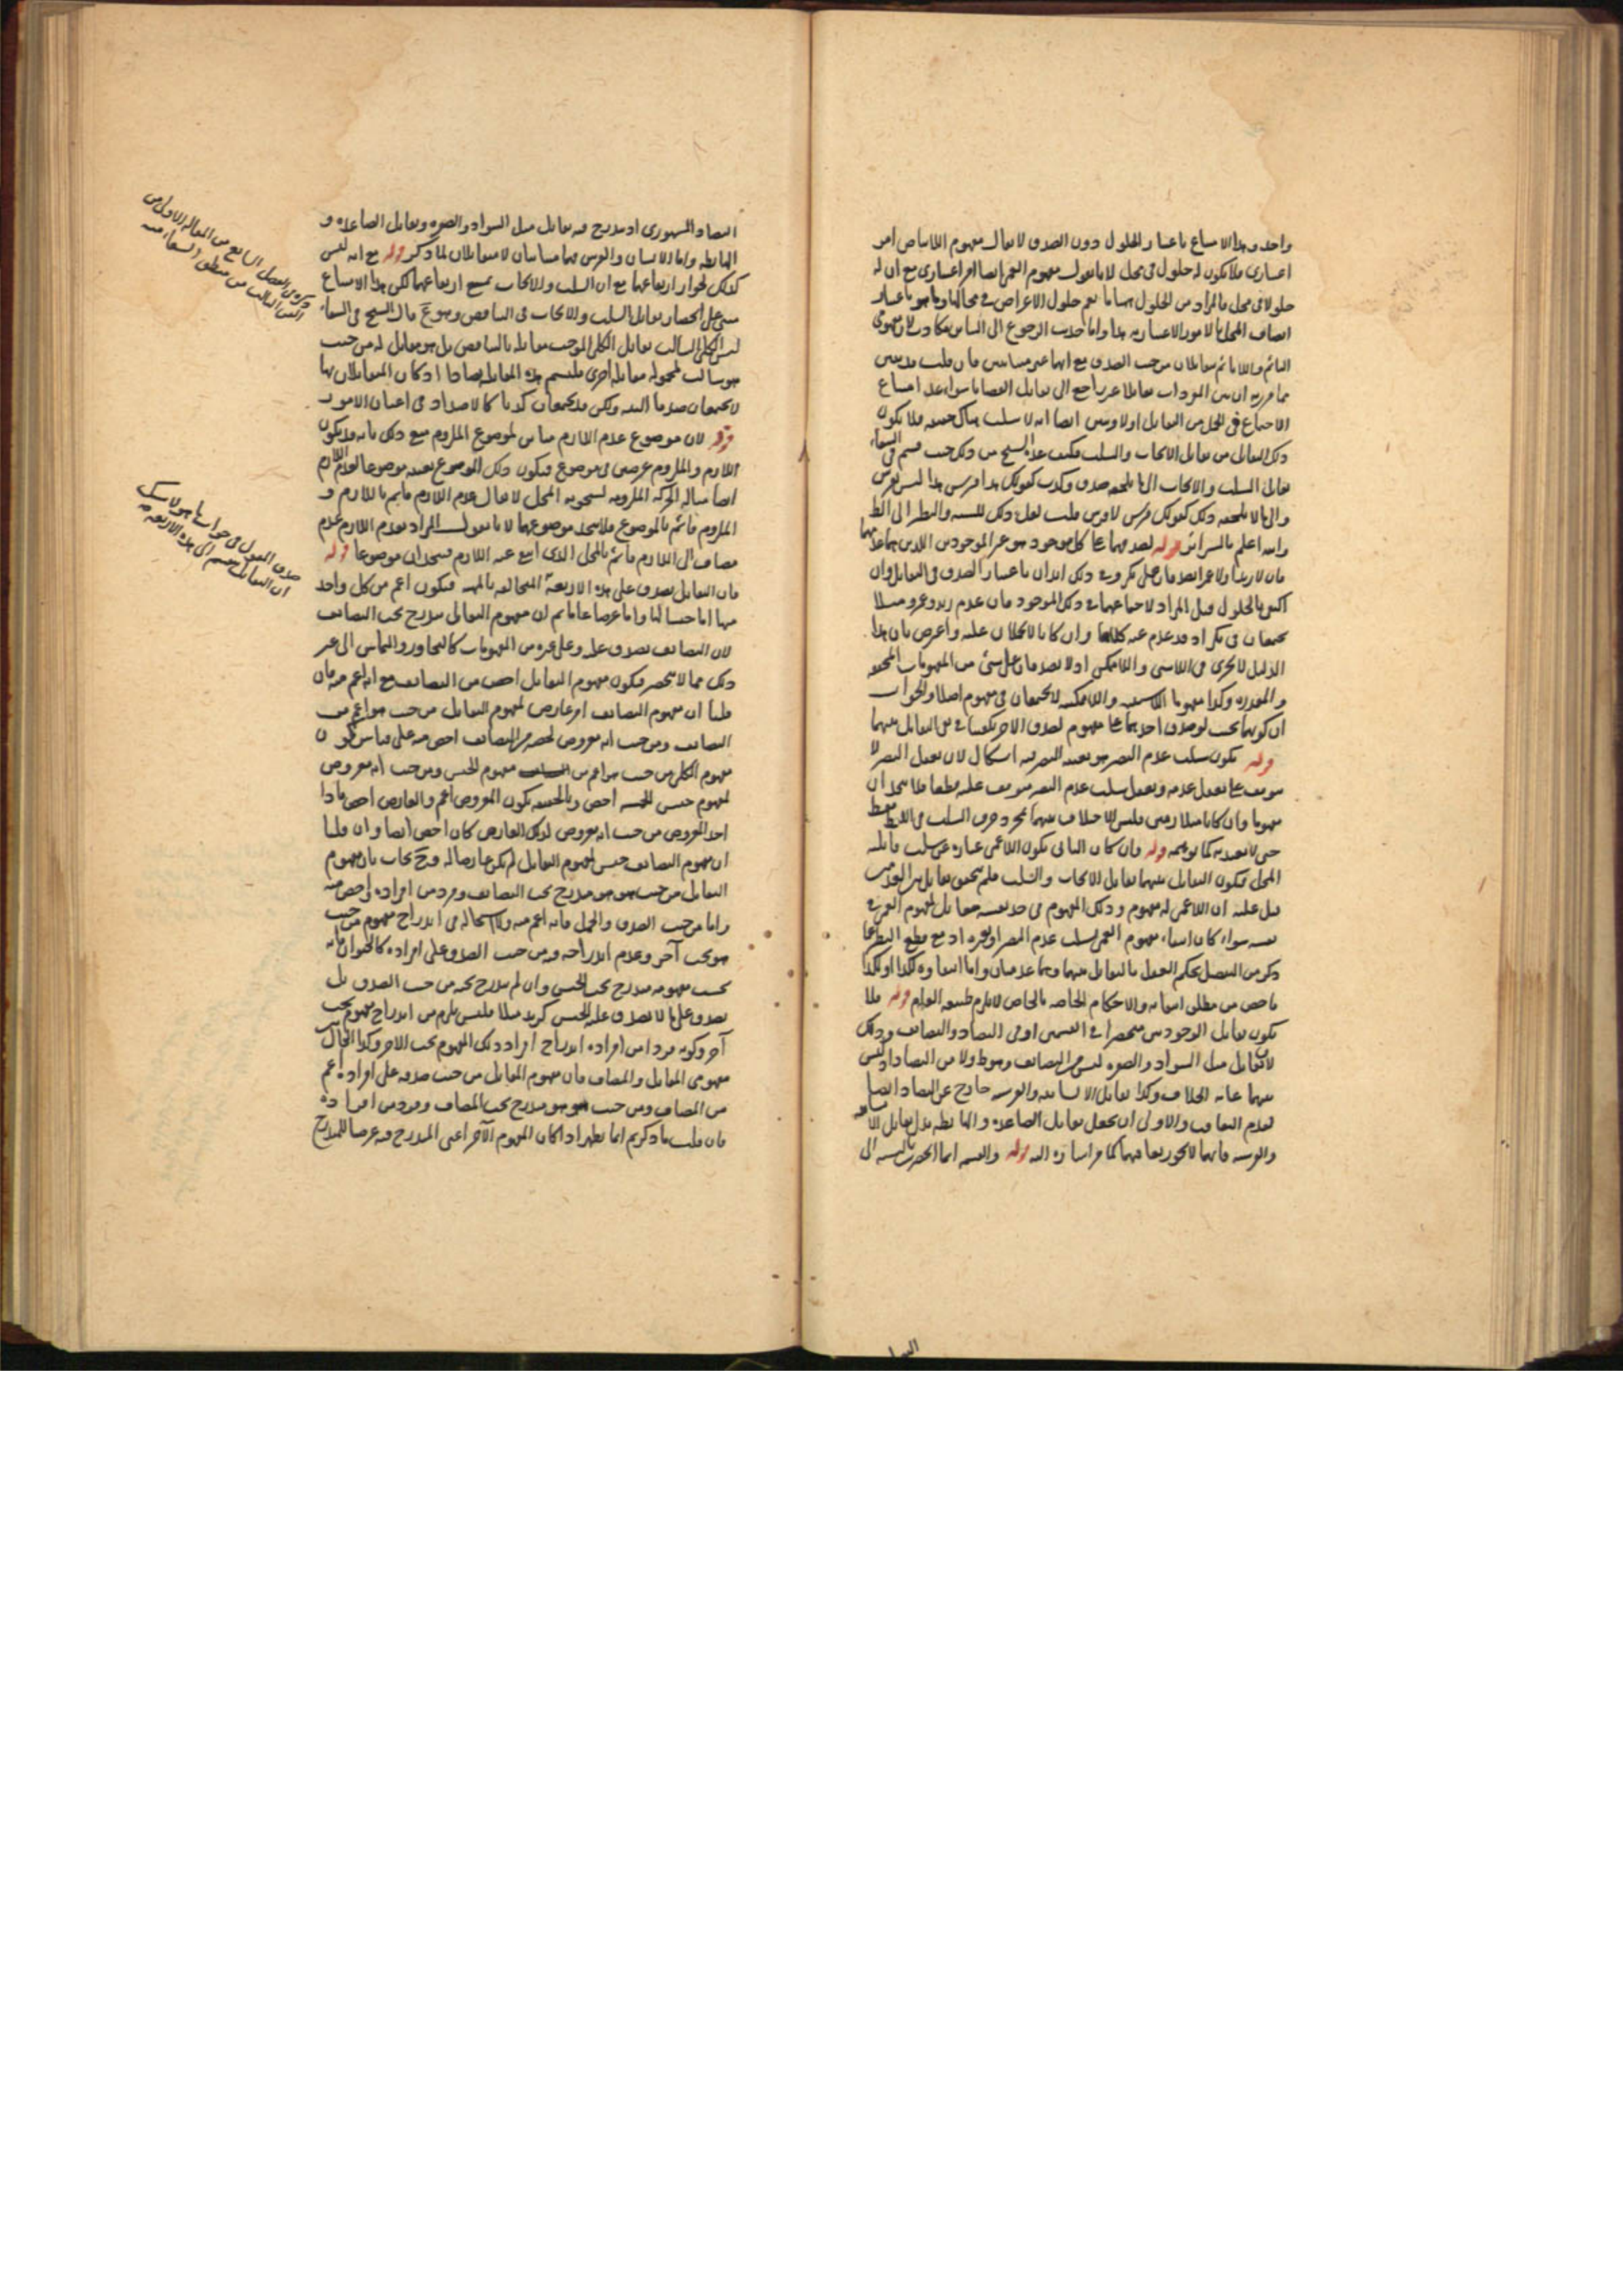 واحد وهذا الامتناع باعتبار الحلول دون الصدق لا يقال مفهوم اللابياض امر
اعتباري فلا يكون له حلول في محل لانا نقول مفهوم العمى ايضا امر اعتباري مع ان له
حلولا في محل فالمراد من الحلول ههنا ما يعم حلول الاعراض في محالها وما هو باعتبار
اتصاف المحل بالامور الاعتبارية هذا واما حديث الرجوع الى فكاذب لان مفهومي
النائم واللانائم متقابلان من حيث الصدق مع انهما غير متنافيين فان قلت قد تبين
مما قرره ان بين المفردات تقابلا غير راجع الى تقابل القضايا سواء عد امتناع
الاجتماع في المحل من التقابل اولا وتبين ايضا انه لا سلب هناك حقيقة فلا يكون
ذلك التقابل من تقابل الايجاب والسلب فكيف عده الشيخ من ذلك حيث قسم في الشفاء
تقابل السلب والايجاب الى ما يلحقه صدق وكذب كقولك هذا فرس هذا ليس بفرس
والى ما لا يلحقه ذلك كقولك فرس لا فرس قلت لعل ذلك للتشبيه والنظر الى اللفظ
والله اعلم بالسرائر قوله لصدقهما على كل موجود هو غير الموجودين اللذين هما عدمهما
فان لا زيدا ولا عمرا يصدقان على بكر وفي ذلك ايذان باعتبار الصدق في التقابل وان
اكتفي بالحلول قيل المراد لاجتماعهما في ذلك الموجود فان عدم زيد وعمرو مثلا
يجتمعان في بكر اذ قد عدم عنه كلاهما وان كانا لا يحملان عليه واعترض بان هذا
الدليل لا يجري في اللاشيء واللاممكن اذ لا يصدقان على شيء من المفهومات المحققة
والمقدرة وكذا مفهوما اللاشيئية واللاممكنية لا يجتمعان في مفهوم اصلا والجواب
ان كونهما بحيث لو صدق احدهما على مفهوم لصدق الاخر يكفينا في نفي التقابل بينهما
قوله يكون سلب عدم البصر هو بعينه البصر فيه اشكال لان تعقل البصر لا
يتوقف على تعقل عدمه وتعقل سلب عدم البصر موقوف عليه قطعا فلا يتحدان
مفهوما وان كانا متلازمين فليس الاختلاف بينهما بمجرد حرف السلب في اللفظ فقط
حتى لا يعتد به كما توهمه قوله وان كان الثاني يكون اللاعمى عبارة عن سلب قابلية
المحل فيكون التقابل بينهما تقابل الايجاب والسلب فلم يتحقق تقابل بين العدمين
قيل عليه ان اللاعمى له مفهوم وذلك المفهوم في حد نفسه مقابل لمفهوم العمى في
نفسه سواء كان انتفاء مفهوم العمى لسلب عدم البصر او لغيره اذ مع قطع النظر عما
ذكر من التفصيل يحكم العقل بالتقابل بينهما وهما عدميان واما انتفاؤه لكذا او لكذا
فاخص من مطلق انتفائه والاحكام الخاصة بالخاص لا يلزم طبيعة العام قوله فلا
يكون تقابل الوجوديين منحصرا في القسمين اعني التضاد والتضايف وذلك
لان تقابل مثل السواد والصفرة ليس من التضايف وهو ظ ولا من التضاد اذ ليس
بينهما غاية الخلاف وكذا تقابل الانسانية والفرسية خارج عن التضاد ايضا
لعدم التعاقب والاولى ان يجعل تقابل الصاعدة والهابطة بدل تقابل الانسانية
والفرسية فانهما لا يجوز تعاقبهما كما مر اشارة اليه قوله والقسمة انما انحصرت بالنسبة الى
التضاد المشهوري اذ يندرج فيه تقابل مثل السواد والصفرة وتقابل الصاعدة و
الهابطة واما الانسان والفرس فهما متباينان لا متقابلان لما ذكر قوله مع انه ليس
كذلك لجواز ارتفاعهما مع ان السلب والايجاب يمتنع ارتفاعهما لكن هذا الامتناع
مبني على انحصار تقابل السلب والايجاب في التناقض وهو مم قال الشيخ في الشفاء
ليس الكلي السالب يقابل الكلي الموجب مقابلة بالتناقض بل هو مقابل له من حيث
هو سالب لمحموله مقابلة اخرى فلنسم هذه المقابلة تضادا اذ كان المتقابلان بها
لا يجتمعان صدقا البتة ولكن قد يجتمعان كذبا كالاضداد في اعيان الامور
قوله لان موضوع عدم اللازم مباين لموضوع الملزوم منع ذلك بانه قد يكون
اللازم والملزوم عرضين في موضوع فيكون ذلك الموضوع بعينه موضوعا لعدم اللازم
ايضا مثاله الحركة الملزومة لسخونة المحل لا يقال عدم اللازم قائم باللازم و
الملزوم قائم بالموضوع فلا يتحد موضوعهما لانا نقول المراد بعدم اللازم عدم
مضاف الى اللازم قائم بالمحل الذي انتفى عنه اللازم فيتحدان موضوعا قوله
فان التقابل يصدق على هذه الاربعة المتخالفة بالمهية فيكون اعم من كل واحد
منها اما جنسا لها واما عرضا عاما ثم ان مفهوم التقابل مندرج تحت التضايف
لان التضايف يصدق عليه وعلى غيره من المفهومات كالتجاور والتماس الى غير
ذلك مما لا ينحصر فيكون مفهوم التقابل اخص من التضايف مع انه اعم منه فان
قلنا ان مفهوم التضايف امر عارض لمفهوم التقابل من حيث هو اعم من
التضايف ومن حيث انه معروض لحصة من التضايف اخص منه على قياس كون
مفهوم الكلي من حيث هو اعم من مفهوم الجنس ومن حيث انه معروض
لمفهوم جنس الخمسة اخص وبالحقيقة يكون المعروض اعم والعارض اخص فاذا
اخذ المعروض من حيث انه معروض لذلك العارض كان اخص ايضا وان قلنا
ان مفهوم التضايف جنس لمفهوم التقابل لم يكن عارضا له وح يجاب بان مفهوم
التقابل من حيث هو هو مندرج تحت التضايف وفرد من افراده واخص منه
واما من حيث الصدق والحمل فانه اعم منه ولا استحالة في اندراج مفهوم من حيث
هو تحت آخر وعدم اندراجه فيه من حيث الصدق على افراده كالحيوان فانه
بحسب مفهومه مندرج تحت الجنس وان لم يندرج تحته من حيث الصدق بل
يصدق على ما لا يصدق عليه الجنس كزيد مثلا فليس يلزم من اندراج مفهوم تحت
آخر وكونه فردا من افراده اندراج افراد ذلك المفهوم تحت الاخر وكذا الحال في
مفهومي المقابل والمضاف فان مفهوم المقابل من حيث صدقه على افراده اعم
من المضاف ومن حيث هو هو مندرج تحت المضاف وفرد من افراده
فان قلت ما ذكرتم انما يظهر اذا كان المفهوم الآخر اعني المندرج فيه عرضيا للمندرج
ذكره في الفصل السابع من المقالة الاولى من
الفن الثالث من منطق الشفاء منه
صدق المقول في جواب ما هو لا شك
ان التقابل ينقسم الى هذه الاربعة منه